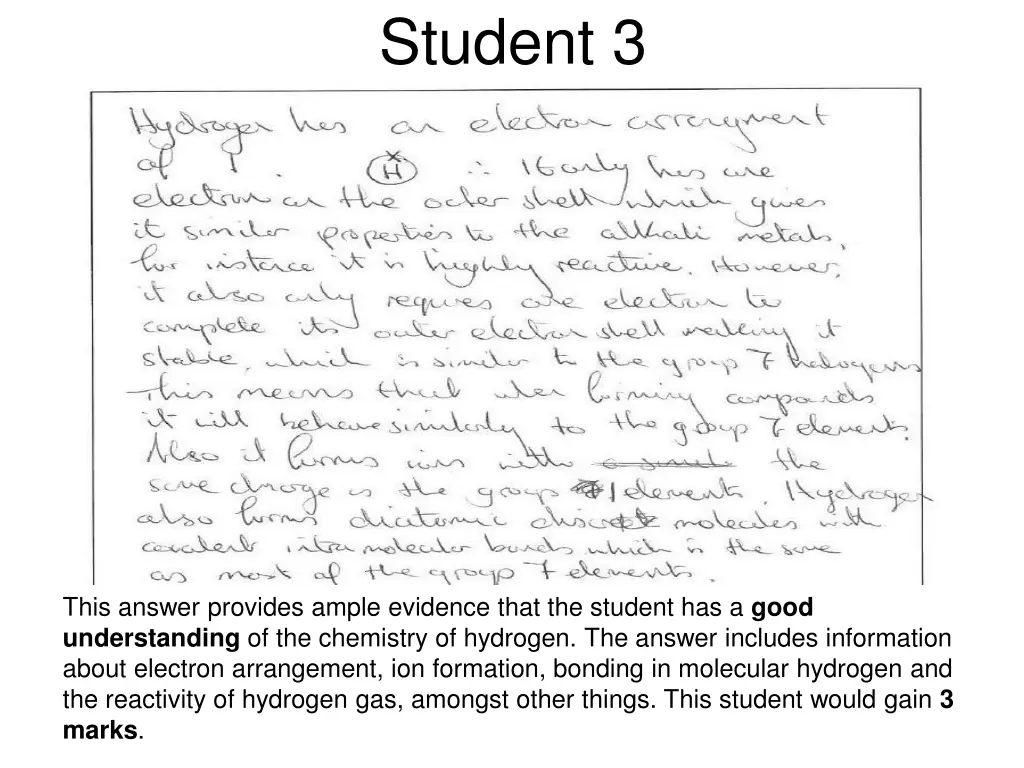 Student 3
Hydrogen has an electron arrangment
of 1. H ∴ it only has one
electron in the outer shell which gives
it similar properties to the alkali metals,
for instance it is highly reactive. However,
it also only requires one electron to
complete its outer electron shell making it
stable, which is similar to the group 7 halogens
This means that when forming compounds
it will behave similarly to the group 7 elements.
Also it forms ions with the
same charge as the group 1 elements. Hydrogen
also forms diatomic discrete molecules with
covalent intra molecular bonds which is the same
as most of the group 7 elements.
This answer provides ample evidence that the student has a good
understanding of the chemistry of hydrogen. The answer includes information
about electron arrangement, ion formation, bonding in molecular hydrogen and
the reactivity of hydrogen gas, amongst other things. This student would gain 3
marks.